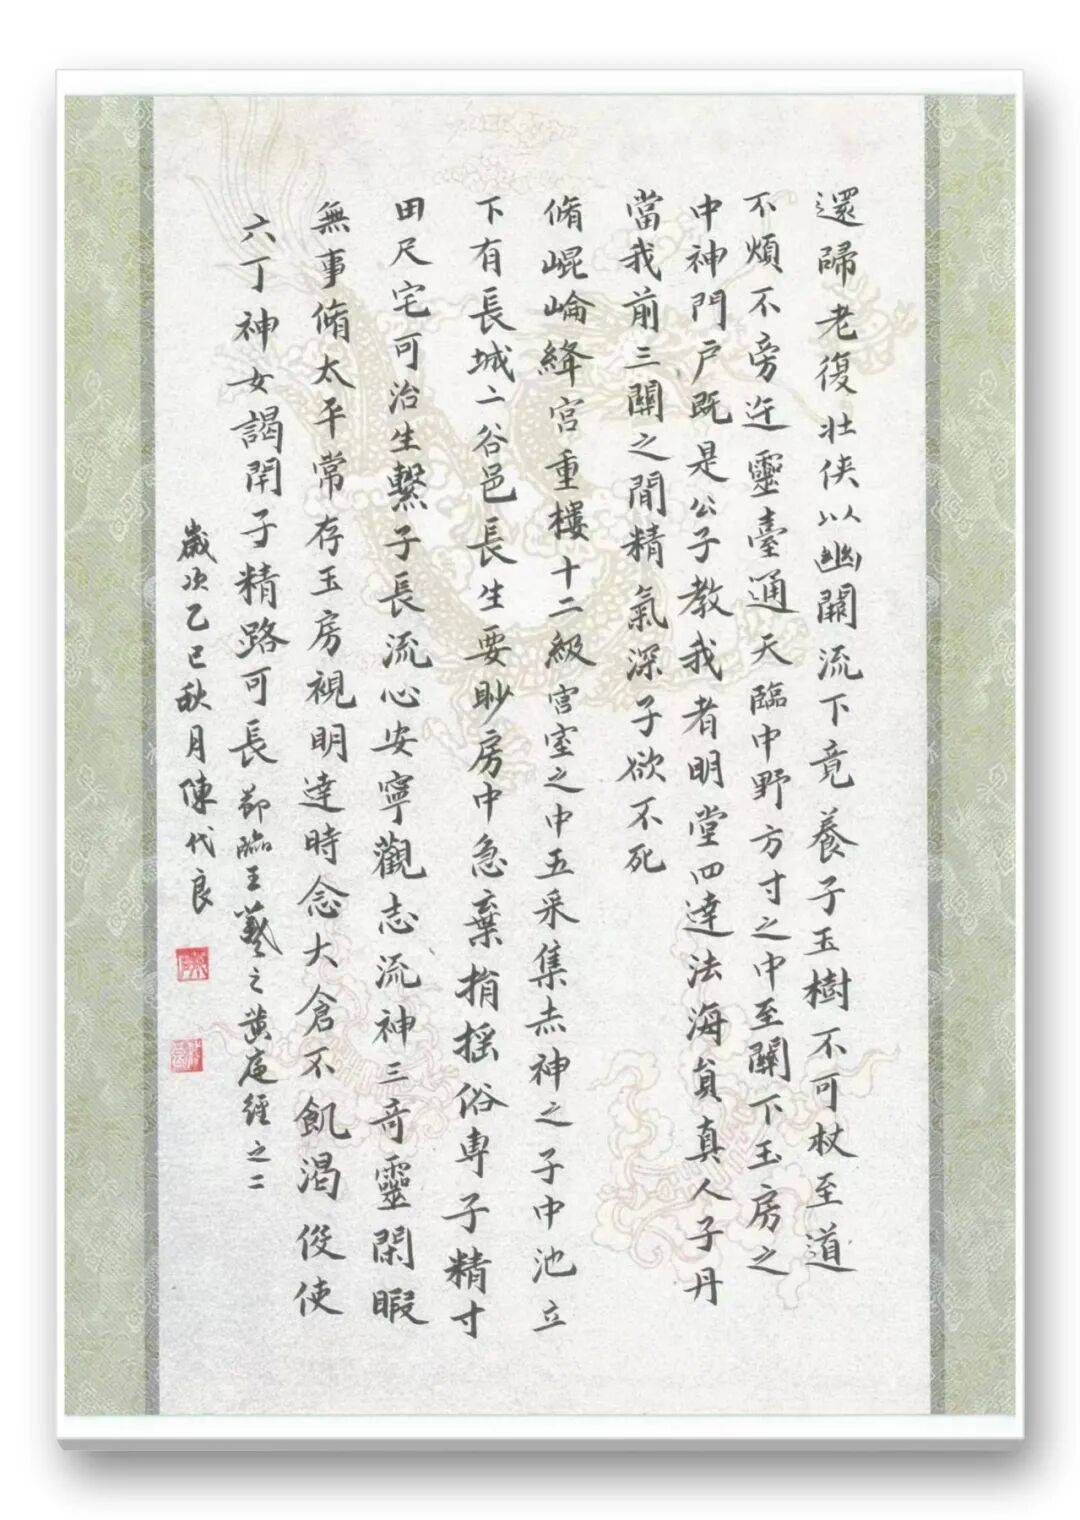 還歸老復壯俠以幽闕流下竟養子玉樹不可杖至道
不煩不旁迕靈臺通天臨中野方寸之中至關下玉房之
中神門戶既是公子教我者明堂四達法海員真人子丹
當我前三關之閒精氣深子欲不死
脩崐崘絳宮重樓十二級宮室之中五采集赤神之子中池立
下有長城二谷邑長生要眇房中急棄捐搖俗專子精寸
田尺宅可治生繫子長流心安寧觀志流神三奇靈閑暇
無事脩太平常存玉房視明達時念大倉不飢渴役使
六丁神女謁閇子精路可長節臨王羲之黄庭經之二
歲次乙巳秋月陳代良